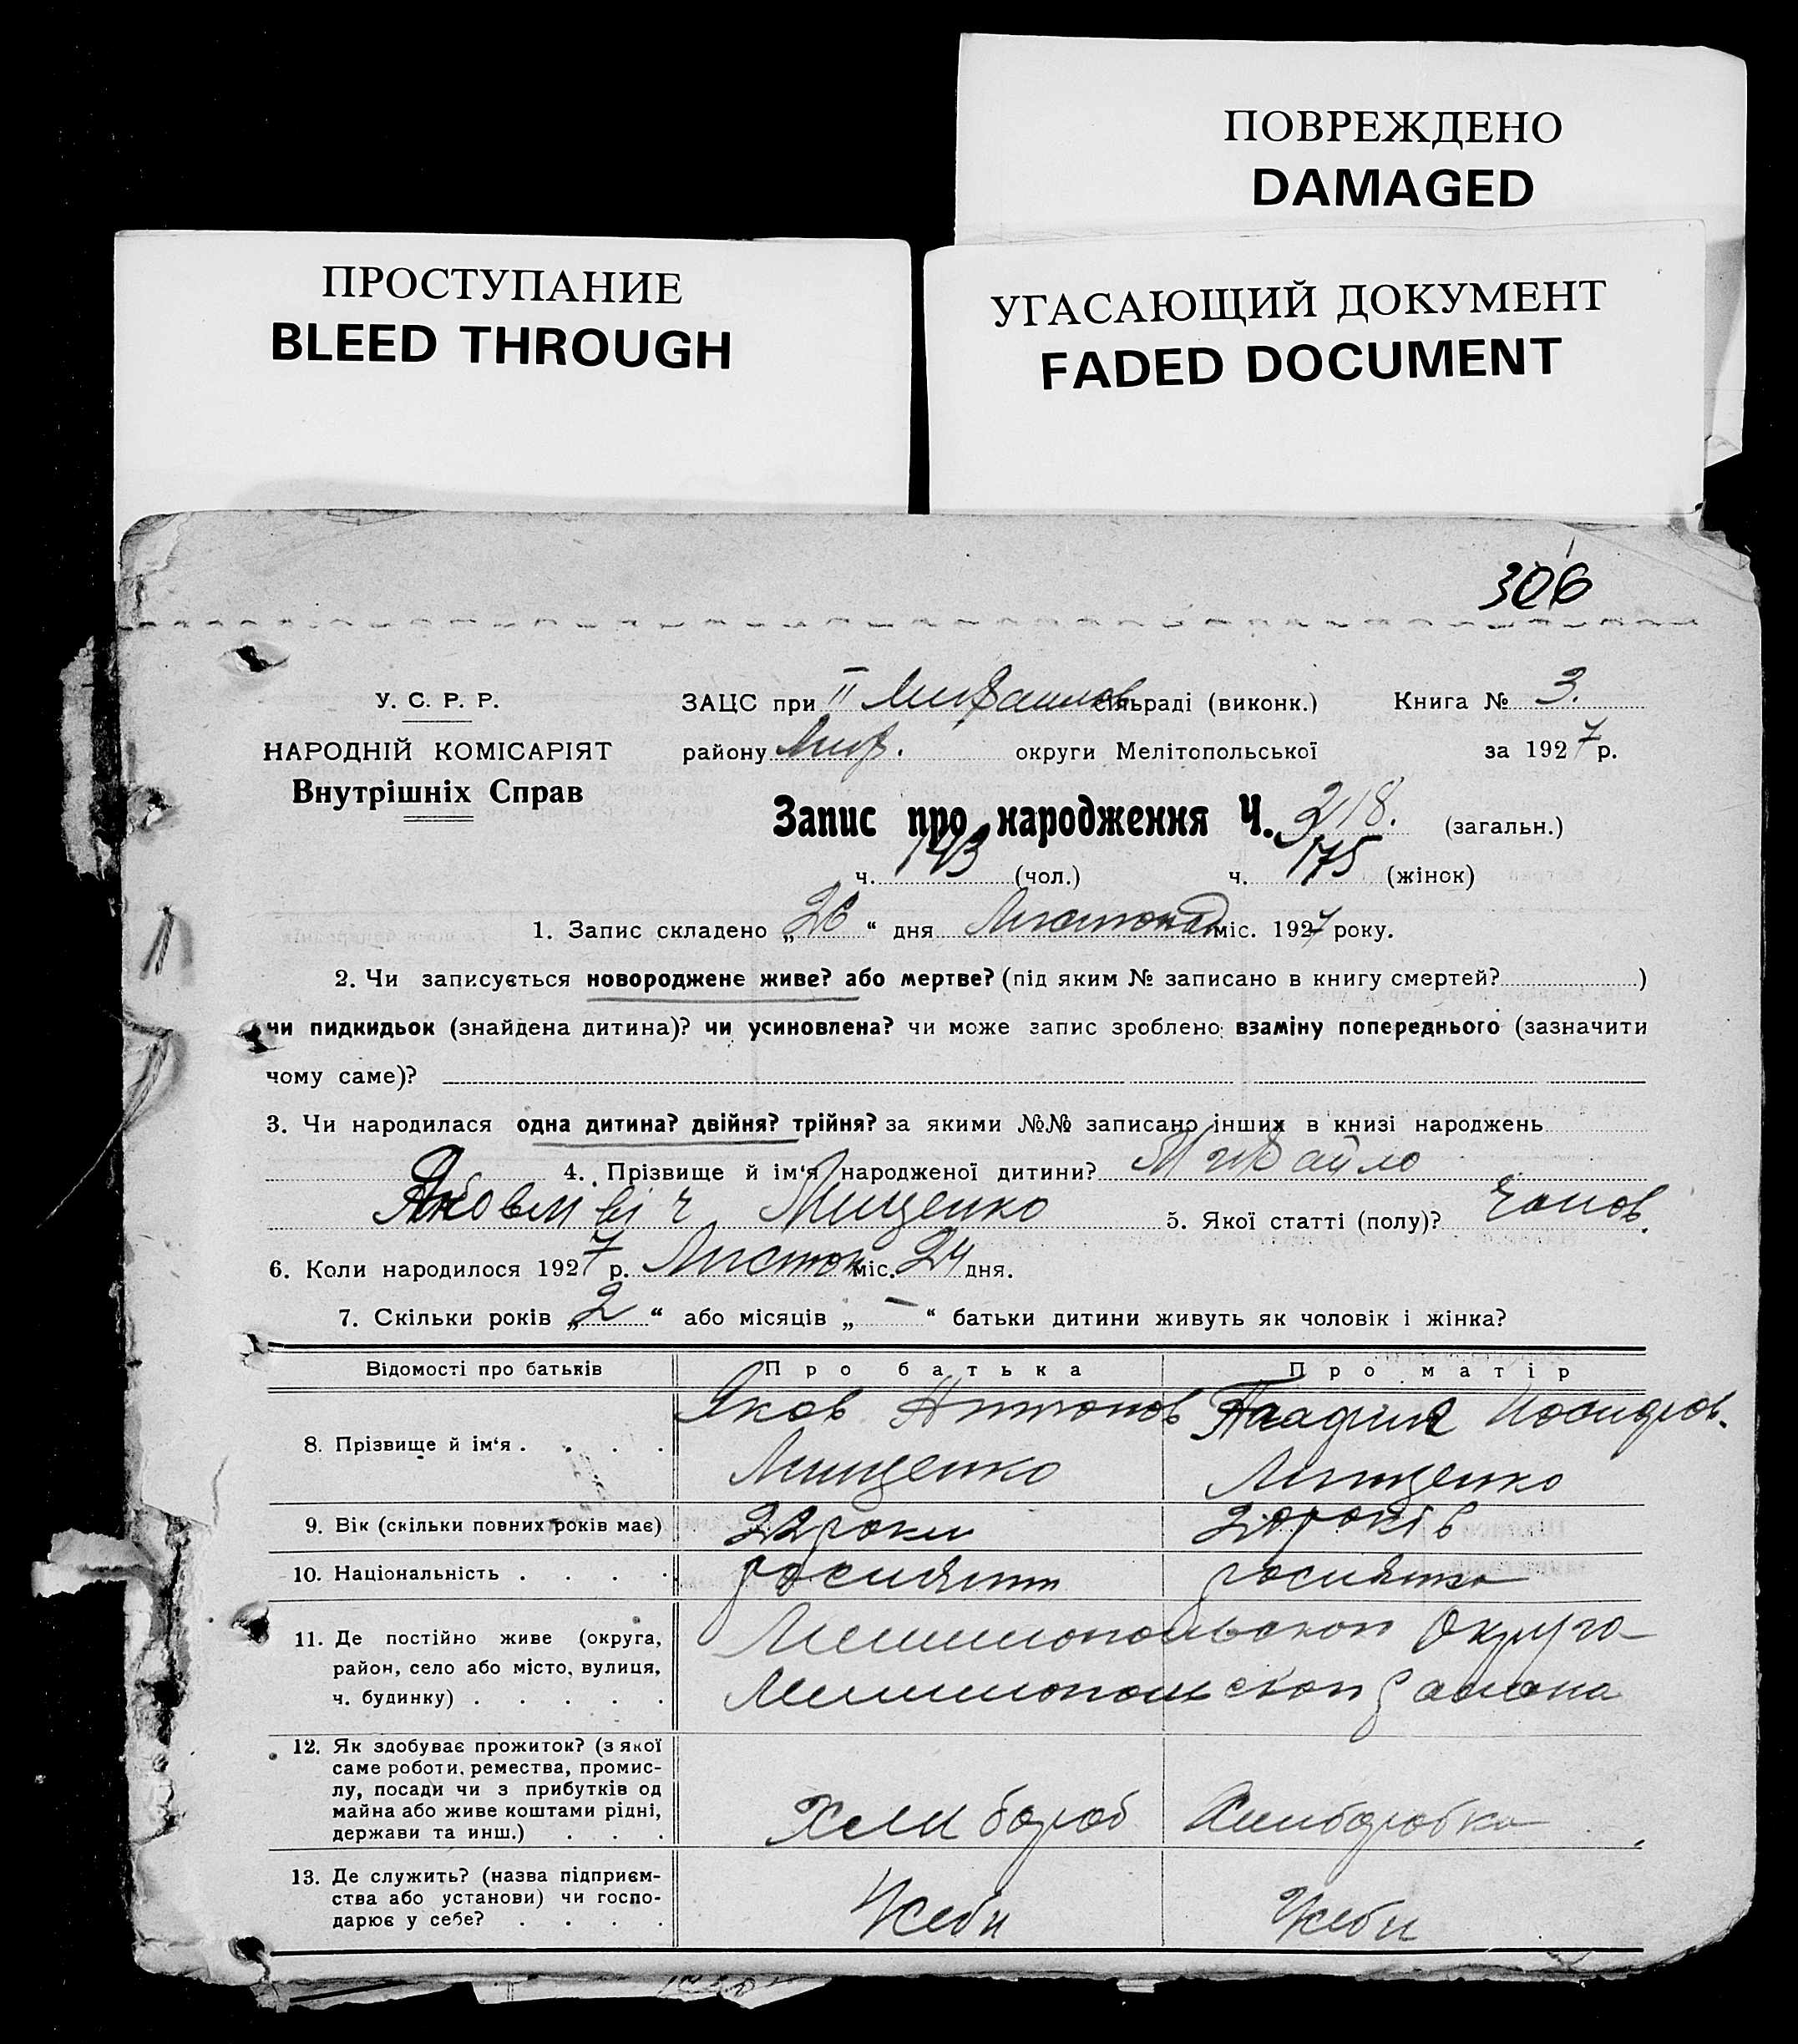 ПОВРЕЖДЕНО
DAMAGED
ПРОСТУПАНИЕ
BLEED THROUGH
УГАСАЮЩИЙ ДОКУМЕНТ
FADED DOCUMENT
306
У. С. Р. Р.
НАРОДНІЙ КОМІСАРІЯТ
Внутрішніх Справ
ЗАЦС при II Михайлов сільраді (виконк.) Книга № 3.
району Мих. округи Мелітопольської за 1927 р.
Запис про народження Ч. 318. (загальн.)
ч. 143 (чол.) ч. 175 (жінок)
1. Запис складено „26“ дня Листопад міс. 1927 року.
2. Чи записується новороджене живе? або мертве? (під яким № записано в книгу смертей? )
чи пидкидьок (знайдена дитина)? чи усиновлена? чи може запис зроблено взаміну попереднього (зазначити
чому саме)?
3. Чи народилася одна дитина? двійня? трійня? за якими №№ записано інших в книзі народжень
4. Прізвище й ім‘я народженої дитини? Михайло
Яковлвіч Мищенко 5. Якої статті (полу)? Чолов.
6. Коли народилося 1927 р. Листоп міс. 24 дня.
7. Скільки років „2“ або місяців „–“ батьки дитини живуть як чоловік і жінка?
Відомості про батьків Про батька Про матір
8. Прізвище й ім‘я . . . . Яков Антонов
Мищенко Мищенко
9. Вік (скільки повних років має) 22 роки 20 років
10. Національність . . . . росиянин росиянка
11. Де постійно живе (округа,
район, село або місто, вулиця,
ч. будинку) . . . . .
Мелитопольской Округа
Мелитопольской района
12. Як здобуває прожиток? (з якої
саме роботи, ремества, промис-
лу, посади чи з прибутків од
майна або живе коштами рідні,
держави та инш.) . . .
Хелибороб Хлиборобка
13. Де служить? (назва підприєм-
ства або установи) чи госпо-
дарює у себе? . . . .
Усеби Усеби